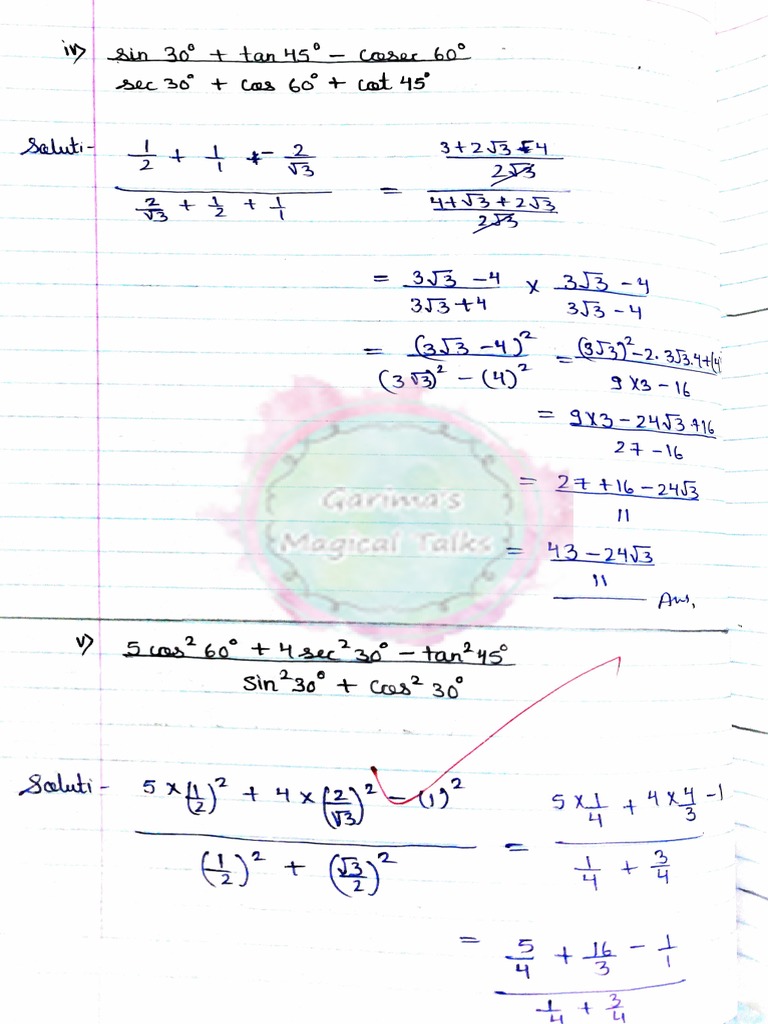 iv) (sin 30° + tan 45° - cosec 60°) / (sec 30° + cos 60° + cot 45°)
Soluti- (1/2 + 1/1 - 2/√3) / (2/√3 + 1/2 + 1/1) = ((√3 + 2√3 - 4)/2√3) / ((4 + √3 + 2√3)/2√3)
= (3√3 - 4)/(3√3 + 4) × (3√3 - 4)/(3√3 - 4)
= (3√3 - 4)² / ((3√3)² - (4)²) = ((3√3)² - 2·3√3·4 + (4 / (9×3 - 16)
= (9×3 - 24√3 + 16) / (27 - 16)
Garima's
= (27 + 16 - 24√3) / 11
Magical Talks
= (43 - 24√3) / 11 Ans.
v) (5 cos² 60° + 4 sec² 30° - tan² 45°) / (sin² 30° + cos² 30°)
Soluti- (5 × (1/2)² + 4 × (2/√3)² - (1)²) / ((1/2)² + (√3/2)²) = (5 × 1/4 + 4 × 4/3 - 1) / (1/4 + 3/4)
= (5/4 + 16/3 - 1/1) / (1/4 + 3/4)